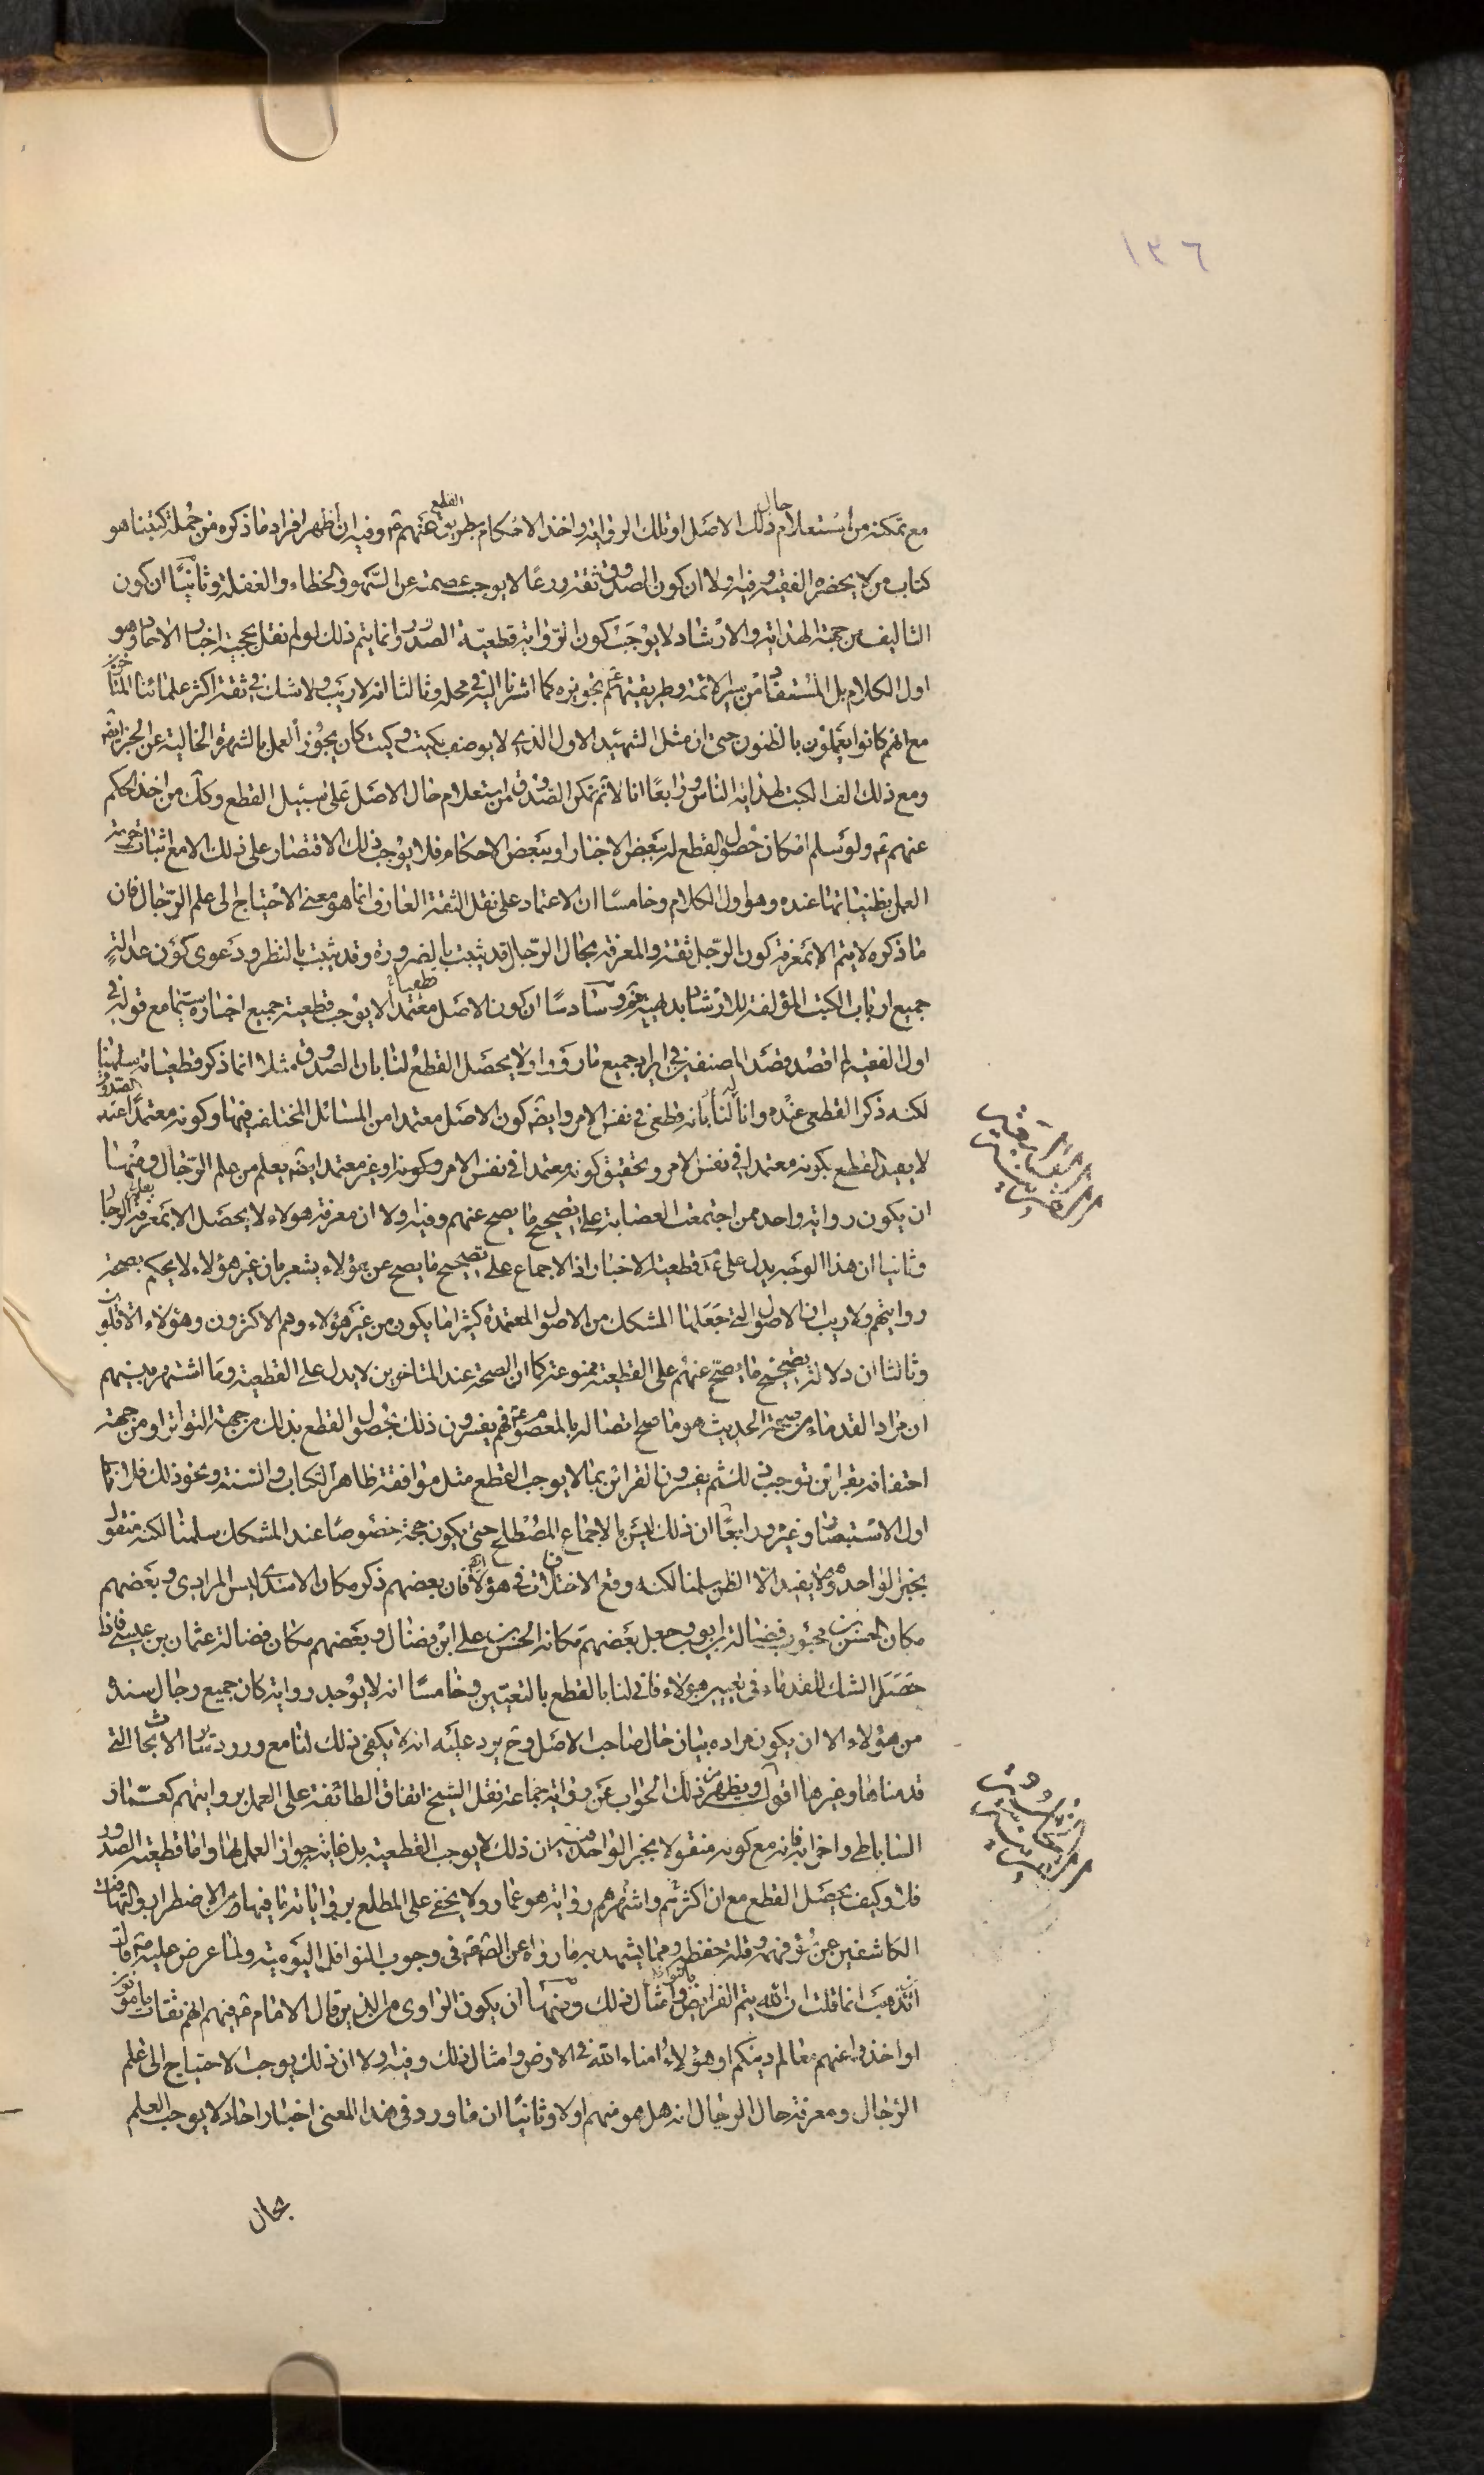 ١٣٦
مع تمكنه من استعلام حال ذلك الاصل او تلك الرواية واخذ الاحكام بطريق القطع عنهم ع وفيه ان اظهر افراد ما ذكره من جملة كتبنا هو
كتاب من لا يحضره الفقيه وفيه اولا ان كون الصدوق ثقة ورعا لا يوجب عصمته عن السهو والخطاء والغفلة وثانيا ان كون
التاليف من جهة الهداية والارشاد لا يوجب كون الرواية قطعية الصدور وانما يتم ذلك لو لم نقل بحجية اخبار الاحاد وهو
اول الكلام بل المستفاد من سيرة الائمة وطريقتهم ع تجويزه كما اشرنا اليه في محله وثالثا انه لا ريب ولا شك في ثقة اكثر علمائنا المتاخرين
مع انهم كانوا يعملون بالظنون حتى ان مثل الشهيد الاول الذي لا يوصف بكيت وكيت كان يجوز العمل بالشهرة الخالية عن الخبر ايضا
ومع ذلك الف الكتب لهداية الناس ورابعا انا لا نم تمكن الصدوق من استعلام حال الاصل على سبيل القطع وكك من اخذ الحكم
عنهم ع ولو سلم امكان حصول القطع له ببعض الاخبار او ببعض الاحكام فلا يوجب ذلك الاقتصار على ذلك الا مع اثبات حرمة
العمل بظنياتها عنده وهو اول الكلام وخامسا ان الاعتماد على نقل الثقة العارف انما هو معنى الاحتياج الى علم الرجال فان
ما ذكره لا يتم الا بمعرفة كون الرجل ثقة والمعرفة بحال الرجال قد يثبت بالضرورة وقد يثبت بالنظر ودعوى كون عدالة
جميع ارباب الكتب المؤلفة للارشاد بديهية غير وسادسا ان كون الاصل معتمدا قطعيا لا يوجب قطعية جميع اخباره سيما مع قوله في
اول الفقيه لم اقصد قصد المصنفين في ايراد جميع ما رووا ولا يحصل القطع لنا بان الصدوق مثلا انما ذكر قطعياته سلمنا
لكنه ذكر القطعي عنده وانى لنا بانه قطعي في نفس الامر وايضا كون الاصل معتمدا من المسائل المختلف فيها وكونه معتمدا عند الصدوق
لا يفيد القطع بكونه معتمدا في نفس الامر وتحقيق كونه معتمدا في نفس الامر وكونه او غير معتمد ايضا يعلم من علم الرجال ومنها
ان يكون رواية واحد من اجتمعت العصابة على تصحيح ما يصح عنهم وفيه اولا ان معرفة هولاء لا يحصل الا بمعرفة الرجال
وثانيا ان هذا الوجه يدل على عدم قطعية الاخبار اذ الاجماع على تصحيح ما يصح عن هؤلاء يشعر بان غير هؤلاء لا يحكم بصحة
روايتهم ولا ريب ان الاصول التي جعلها المشكك من الاصول المعتمدة كثيرا ما يكون من غير هؤلاء وهم الاكثرون وهؤلاء الاقلون
وثالثا ان دلالة تصحيح ما يصح عنهم على القطعية ممنوعة كما ان الصحة عند المتاخرين لا يدل على القطعية وما اشتهر بينهم
ان مراد القدماء من صحة الحديث هو ما صح اتصاله بالمعصوم ع فهم يفسرون ذلك بحصول القطع بذلك من جهة التواتر او من جهة
احتفافه بقراين توجب ذلك ثم يفسرون القرائن بما لا يوجب القطع مثل موافقة ظاهر الكتاب والسنة ونحو ذلك فلاحظ
اول الاستبصار وغيره ورابعا ان ذلك ليس بالاجماع المصطلح حتى يكون حجة خصوصا عند المشكك سلمنا لكنه منقول
بخبر الواحد وهو لا يفيد الا الظن سلمنا لكنه وقع الاختلاف في هؤلاء فان بعضهم ذكر مكان الاسدى ليس المرادي وبعضهم
مكان الحسن بن محبوب فضالة بن ايوب وجعل بعضهم مكانه الحسن بن علي ابن فضال وبعضهم مكان فضالة عثمان بن عيسى فاذا
حصل الشك للقدماء في تعيين هؤلاء فانى لنا بالقطع بالتعيين وخامسا انه لا يوجد رواية كان جميع رجال سنده
من هؤلاء الا ان يكون مراده بيان حال صاحب الاصل وح يرد عليه انه لا يكفي ذلك لنا مع ورود ساير الابحاث التي
قدمناها وغيرها اقول ويظهر من ذلك الجواب عن رواية جماعة نقل الشيخ اتفاق الطائفة على العمل بروايتهم كعمار
الساباطي واخوانه فانه مع كونه منقولا بخبر الواحد فيه ان ذلك لا يوجب القطعية بل غايته جواز العمل بها واما قطعية الصدور
فلا وكيف يحصل القطع مع ان اكثرهم واشهرهم رواية هو عمار ولا يخفى على المطلع برواياته ما فيها من الاضطراب والتهافت
الكاشفين عن سوء فهمه وقلة حفظه ومما يشهد به ما رواه عن الص ع في وجوب النوافل اليومية ولما عرض عليه ع قال
اين تذهب انما قلت ان الله يتم الفرايض بالنوافل وامثال ذلك ومنها ان يكون الراوي من الذين قال الامام ع فيهم انهم ثقات مامونون
او اخذوا عنهم معالم دينكم او هؤلاء امناء الله في الارض وامثال ذلك وفيه اولا ان ذلك يوجب الاحتياج الى علم
الرجال ومعرفة حال الرجال انه هل هو منهم او لا وثانيا ان ما ورد في هذا المعنى اخبار احاد لا يوجب العلم
بحال